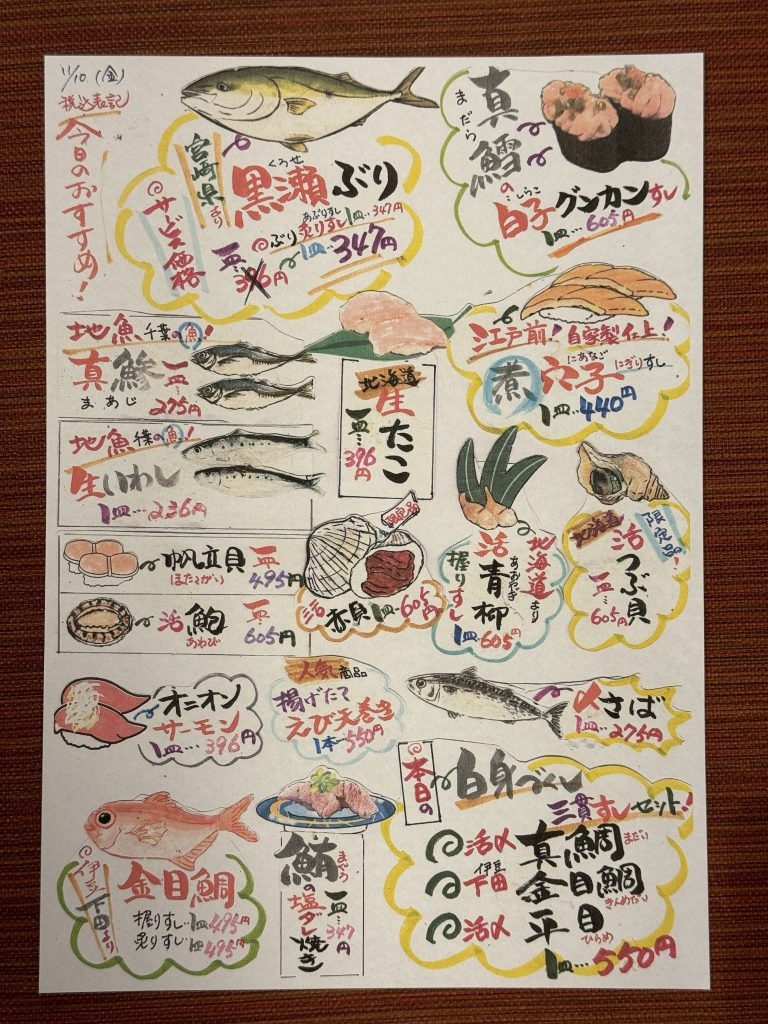 11/10 (金)
税込表記
今日のおすすめ!
宮崎県より
くろせ
黒瀬ぶり
サービス価格
あぶりずし
ぶり炙りすし1皿…347円
一皿…396円→1皿…347円
まだら
真鱈の
しらこ
白子グンカンすし
1皿…605円
地魚千葉の魚!
真鯵一皿…
まあじ 275円
地魚千葉の魚!
生いわし
1皿…236円
北海道
生たこ
一皿…396円
江戸前!自家製仕上!
にあなご
煮穴子にぎりすし
1皿…440円
帆立貝一皿…
ほたてがい 495円
活鮑一皿…
あわび 605円
限定品
活赤貝1皿…605円
北海道より
あおやぎ
活青柳
握りすし
1皿…605円
北海道
限定品!
活つぶ貝
一皿…605円
オニオン
サーモン
1皿…396円
人気商品
揚げたて
えび天巻き
1本…550円
〆さば
1皿…275円
伊豆下田より
金目鯛
握りすし1皿…495円
炙りすし1皿495円
まぐろ
鮪の塩ダレ焼き
一皿…347円
本日の
白身づくし
三貫すしセット!
活〆真鯛まだい
伊豆
下田金目鯛
きんめだい
活〆平目
ひらめ
1皿…550円